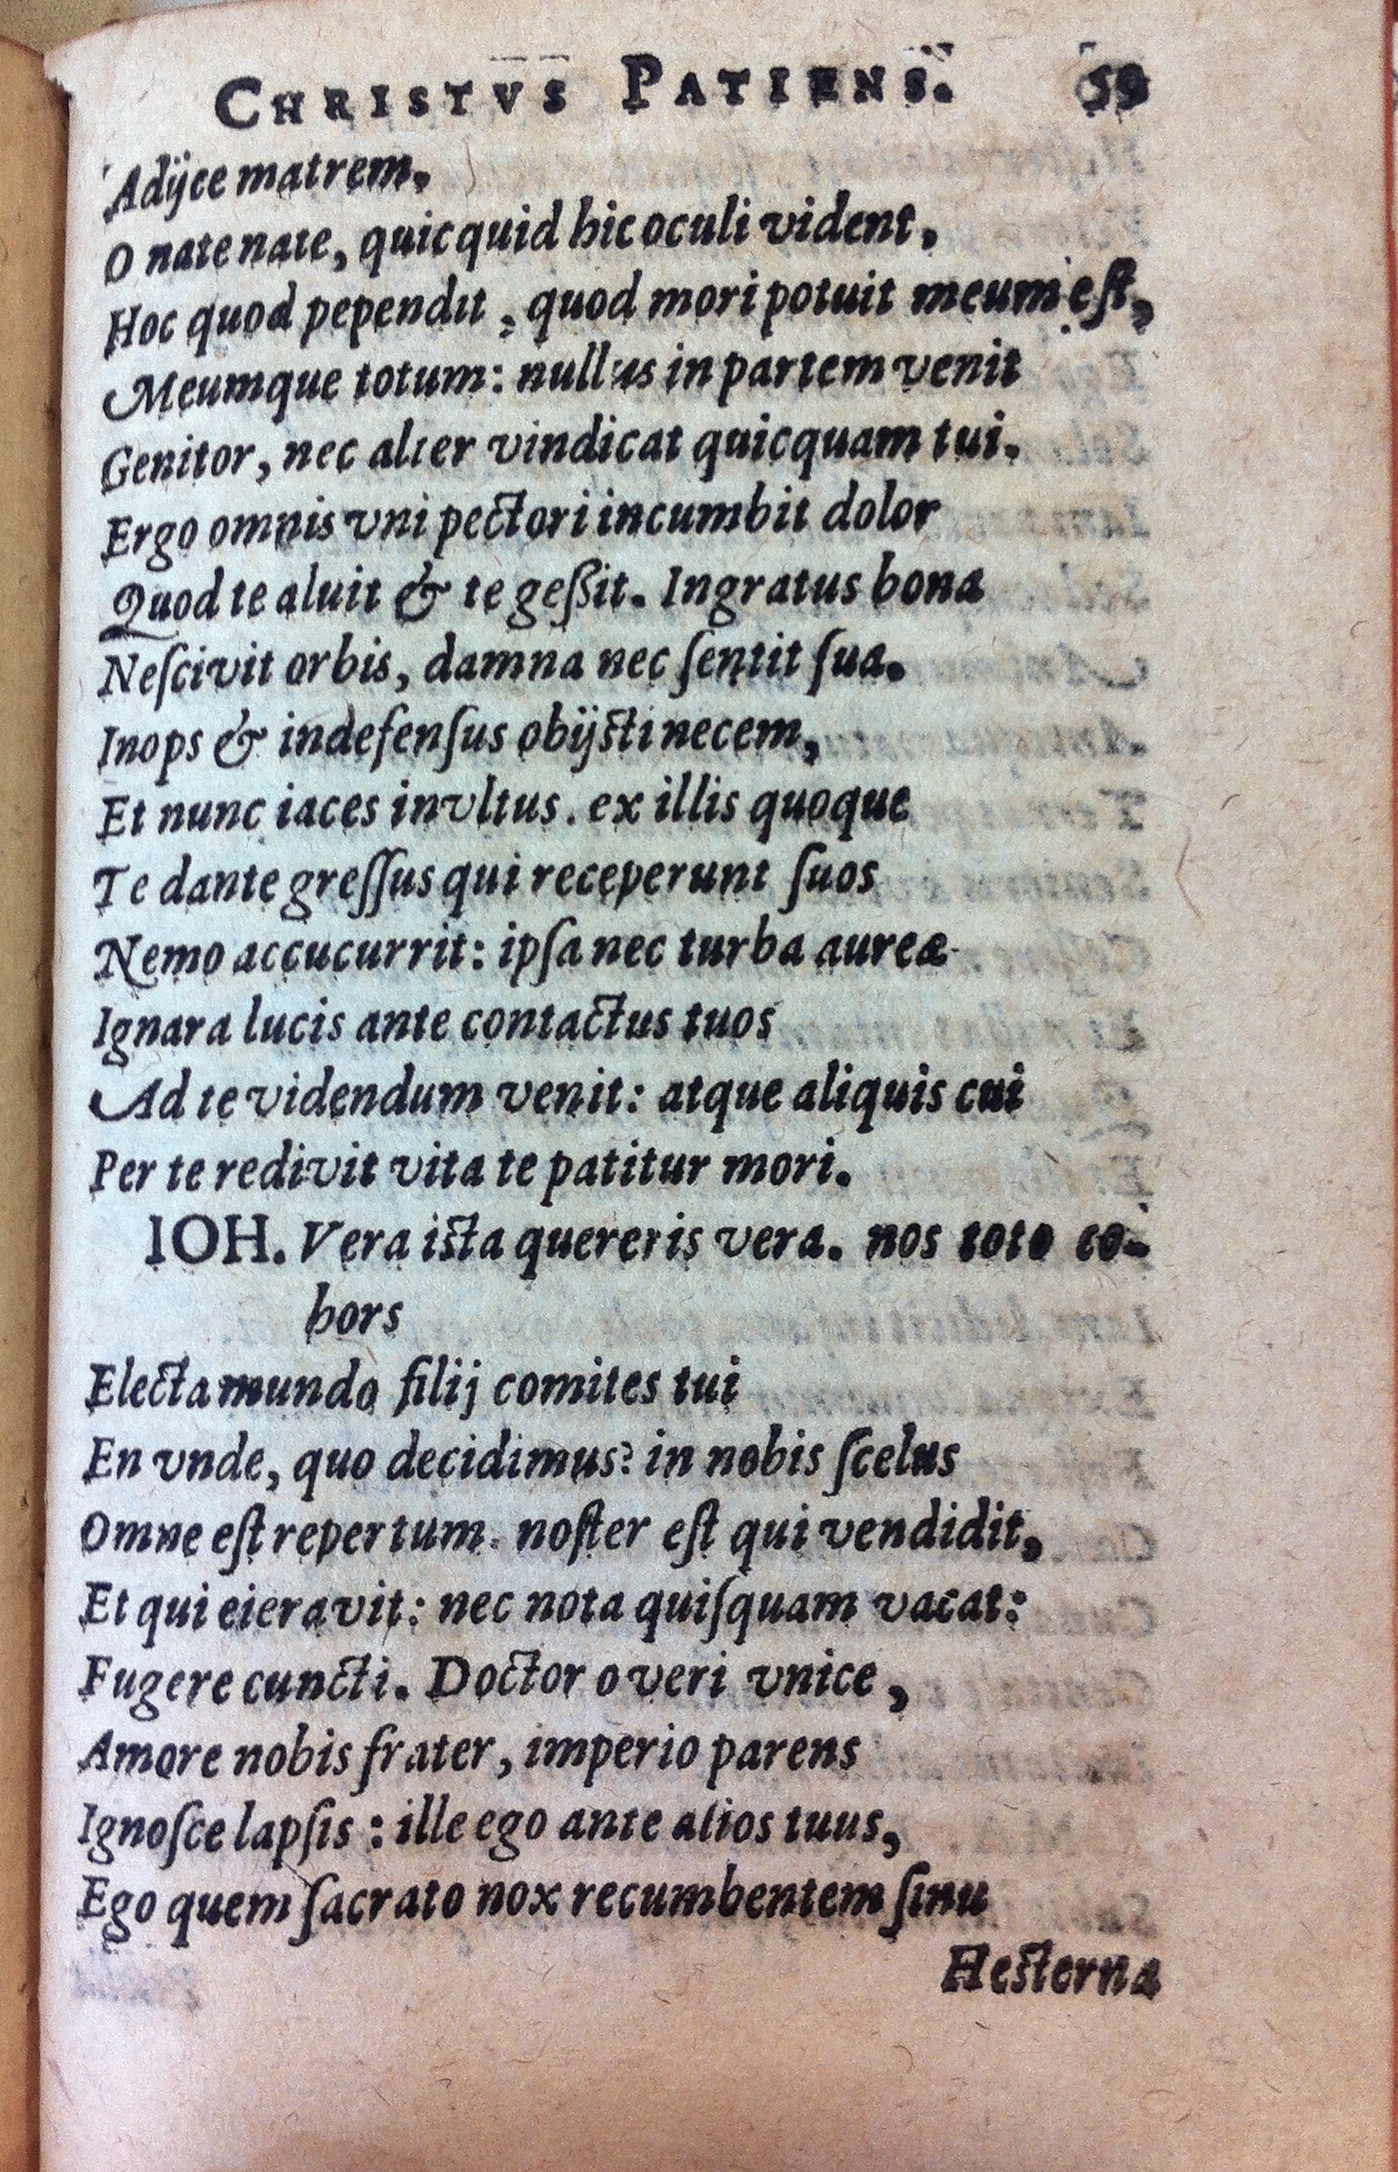 CHRISTVS PATIENS. 59
Adijce matrem.
O nate nate, quicquid hic oculi vident,
Hoc quod pependit, quod mori potuit meum eſt,
Meumque totum: nullus in partem venit
Genitor, nec alter vindicat quicquam tui.
Ergo omnis vni pectori incumbit dolor
Quod te aluit & te geſſit. Ingratus bona
Neſcivit orbis, damna nec ſentit ſua.
Inops & indefenſus obijſti necem,
Et nunc iaces invltus. ex illis quoque
Te dante greſſus qui receperunt ſuos
Nemo accucurrit: ipſa nec turba aureæ
Ignara lucis ante contactus tuos
Ad te videndum venit: atque aliquis cui
Per te redivit vita te patitur mori.
IOH. Vera iſta quereris vera. nos toto co-
hors
Electa mundo filij comites tui
En vnde, quo decidimus? in nobis ſcelus
Omne eſt repertum. noſter eſt qui vendidit,
Et qui eieravit: nec nota quiſquam vacat:
Fugere cuncti. Doctor o veri vnice,
Amore nobis frater, imperio parens
Ignoſce lapſis: ille ego ante alios tuus,
Ego quem ſacrato nox recumbentem ſinu
Heſterna